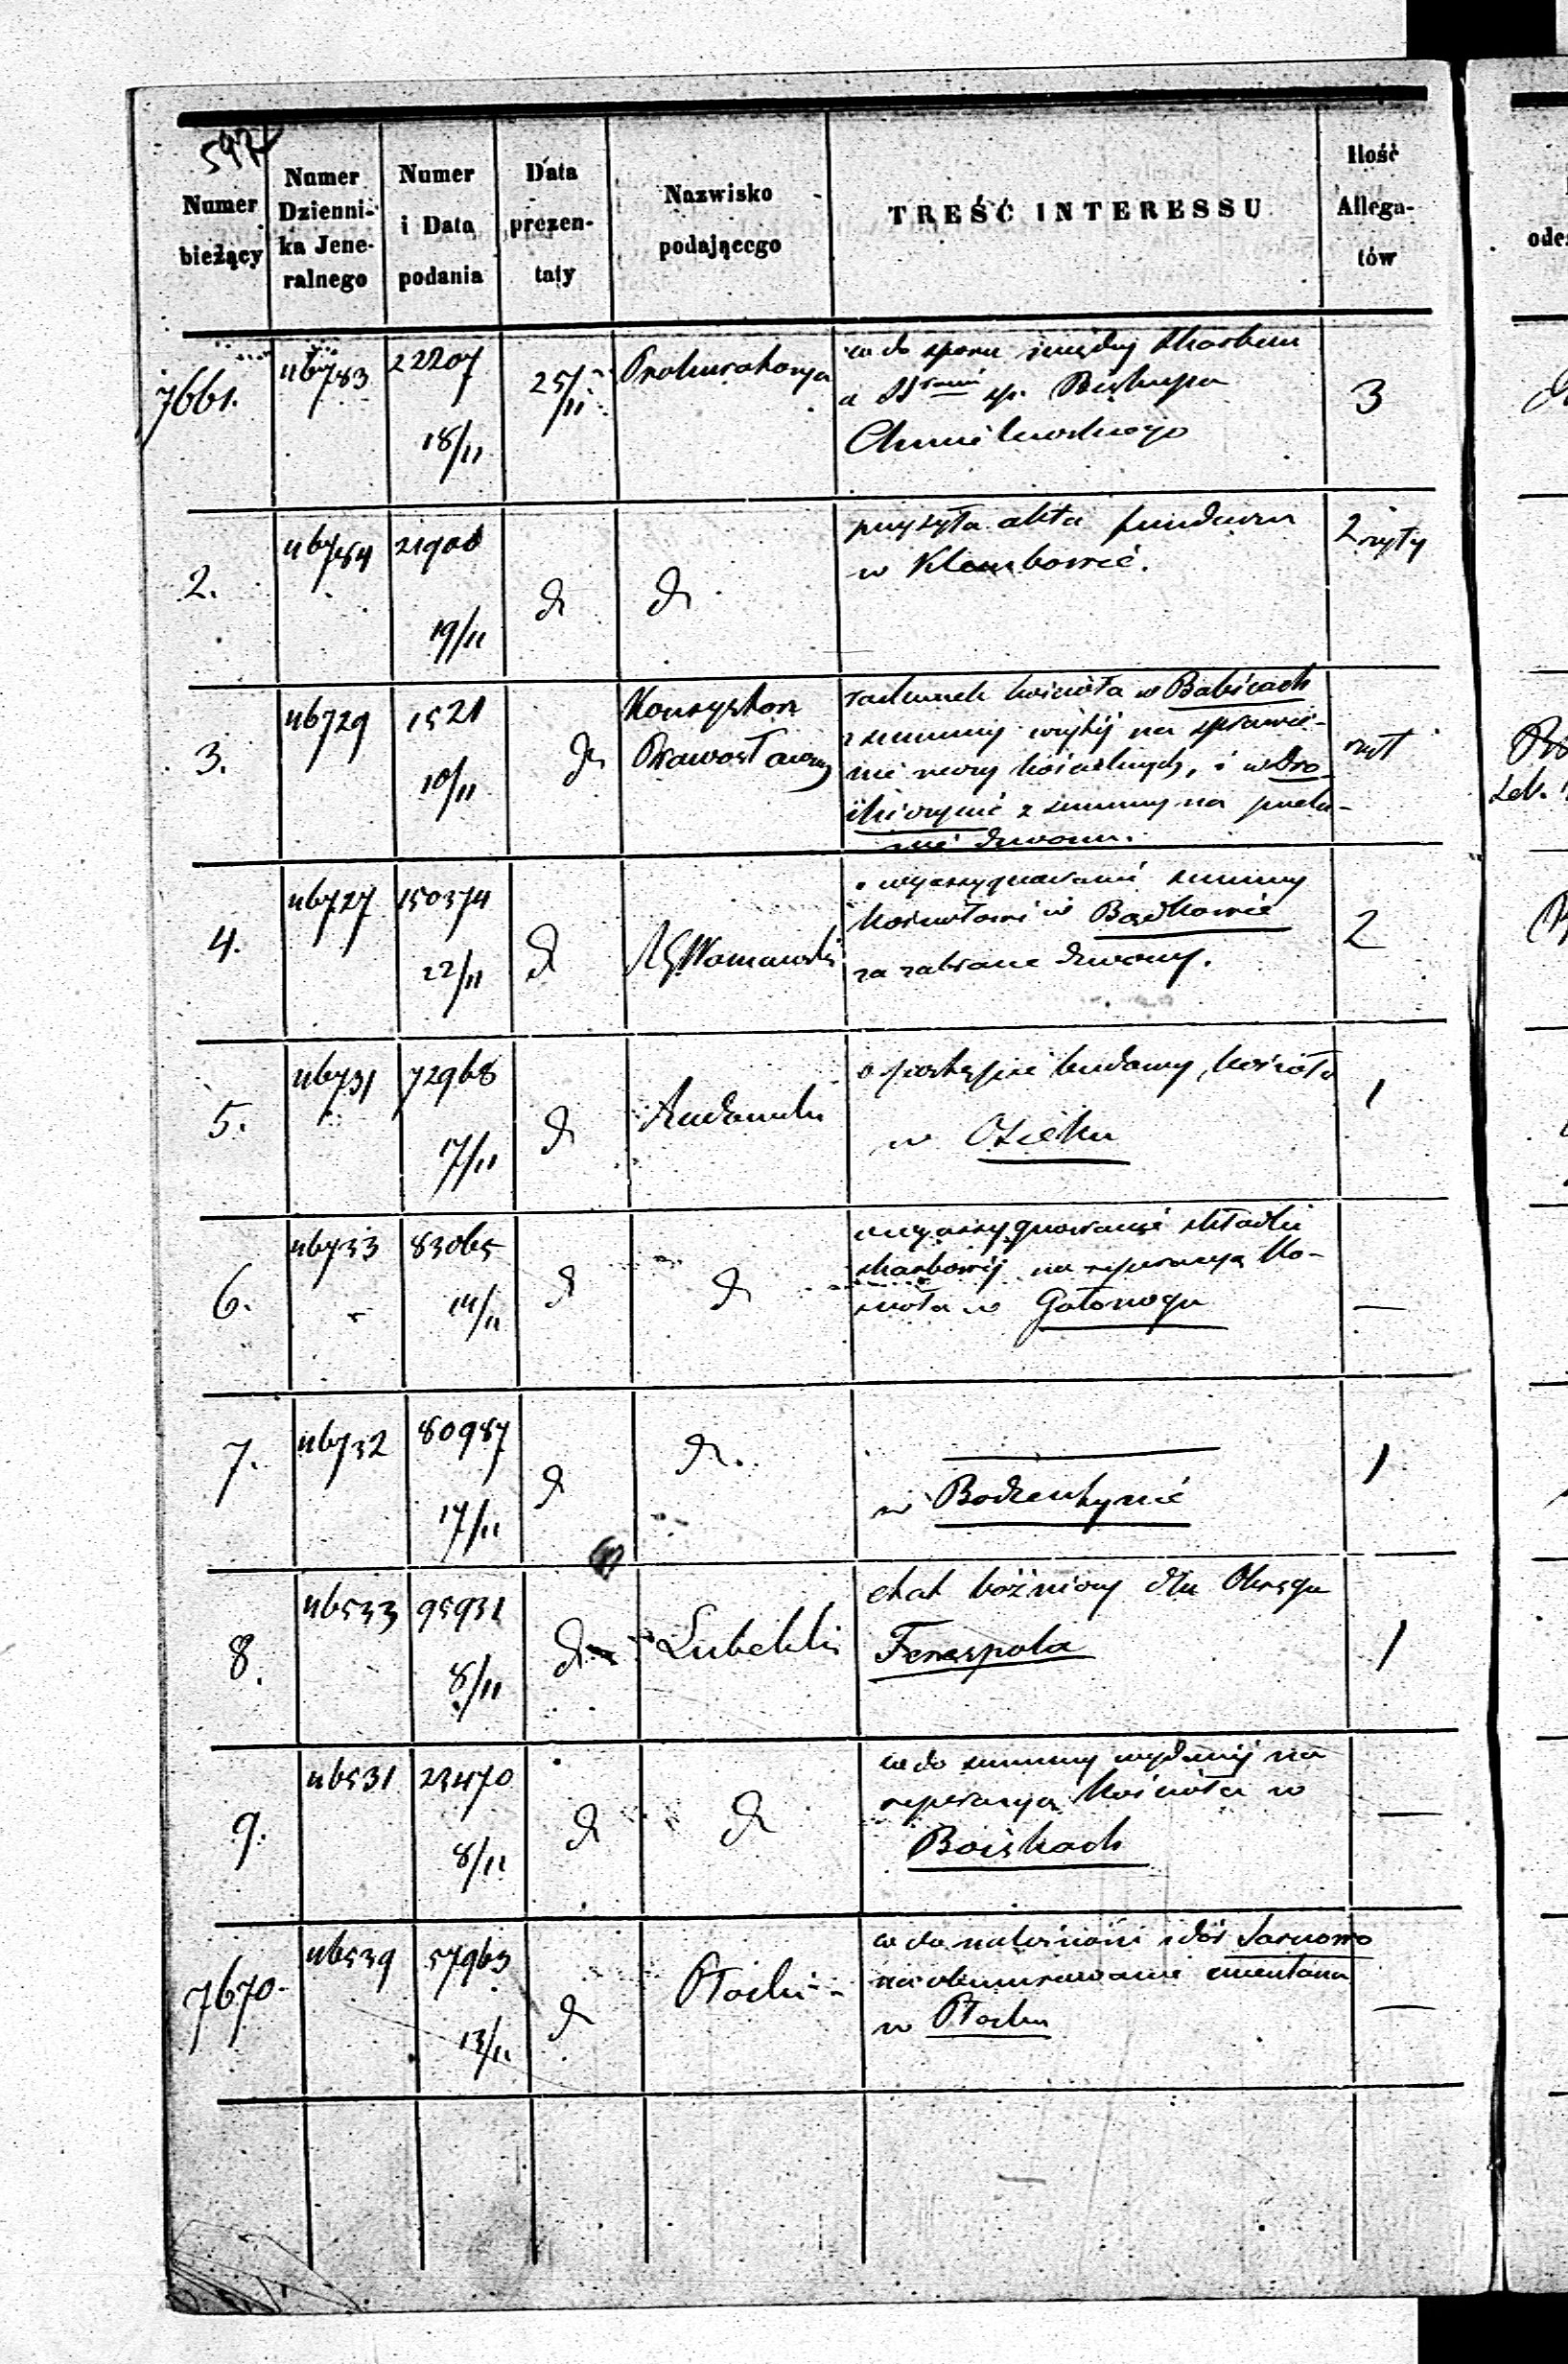 597
Numer bieżący
Numer Dzienni-
ka Jene-
ralnego
Numer
i Data
podania
Data
prezen-
taty
Nazwisko
podającego
TREŚĆ INTERESSU
Ilość
Allega-
tów
7661. 116783 22207 18/11 25/11 Prokuratorya 3
co do sporu między Skarbem
a SSrami sp. Biskupa
Chmielewskiego
2. 116784 21908 19/11 d d 2 szyty
przysyła akta funduszu
w Klembowie.
3. 116729 1521 10/11 d Konsystorz
Prawosławny szyt
rachunek kościoła w Babicach
z summy wziętej na sprawie-
nie rzeczy kościelnych, i w Dro-
hiczynie z summy na przela-
nie dzwonu.
4. 116727 150374 22/11 d 2
o wyassygnowanie summy
kościołowi w Bądkowie
za zabrane dzwony.
5. 116731 72968 17/11 d Radomski 1
o postępie budowy kościoła
w Osieku
6. 116733 83065 14/11 d d —
wyassygnowanie składki
skarbowej na reperacyą Ko-
ścioła w Gołonogu
7. 116732 80987 17/11 d d. 1
w Bodzentynie
8. 116533 95931 8/11 d Lubelski 1
etat bóźniczy dla Okręgu
Terespola
9. 116531 23470 8/11 d d —
co do summy wydanej na
reperacyą kościoła w
Boiskach
7670. 116539 57963 13/11 d Płocki —
co do należności z dóbr Sarnowo
na obmurowanie cmentarza
w Płocku